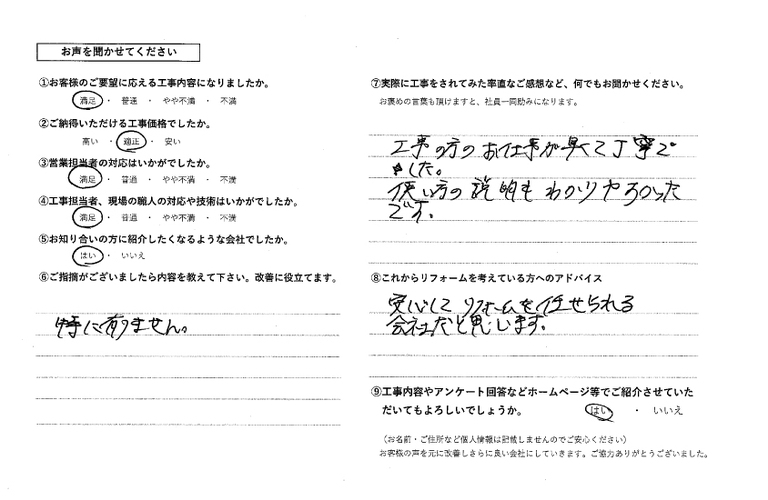 お声を聞かせてください
①お客様のご要望に応える工事内容になりましたか。
満足 ・ 普通 ・ やや不満 ・ 不満
②ご納得いただける工事価格でしたか。
高い ・ 適正 ・ 安い
③営業担当者の対応はいかがでしたか。
満足 ・ 普通 ・ やや不満 ・ 不満
④工事担当者、現場の職人の対応や技術はいかがでしたか。
満足 ・ 普通 ・ やや不満 ・ 不満
⑤お知り合いの方に紹介したくなるような会社でしたか。
はい ・ いいえ
⑥ご指摘がございましたら内容を教えて下さい。改善に役立てます。
特に有りません。
⑦実際に工事をされてみた率直なご感想など、何でもお聞かせください。
お褒めの言葉も頂けますと、社員一同励みになります。
工事の方のお仕事が早くて丁寧で
した。
使い方の説明もわかりやすかった
です。
⑧これからリフォームを考えている方へのアドバイス
安心してリフォームを任せられる
会社だと思います。
⑨工事内容やアンケート回答などホームページ等でご紹介させていた
だいてもよろしいでしょうか。 はい ・ いいえ
（お名前・ご住所など個人情報は記載しませんのでご安心ください）
お客様の声を元に改善しさらに良い会社にしていきます。ご協力ありがとうございました。